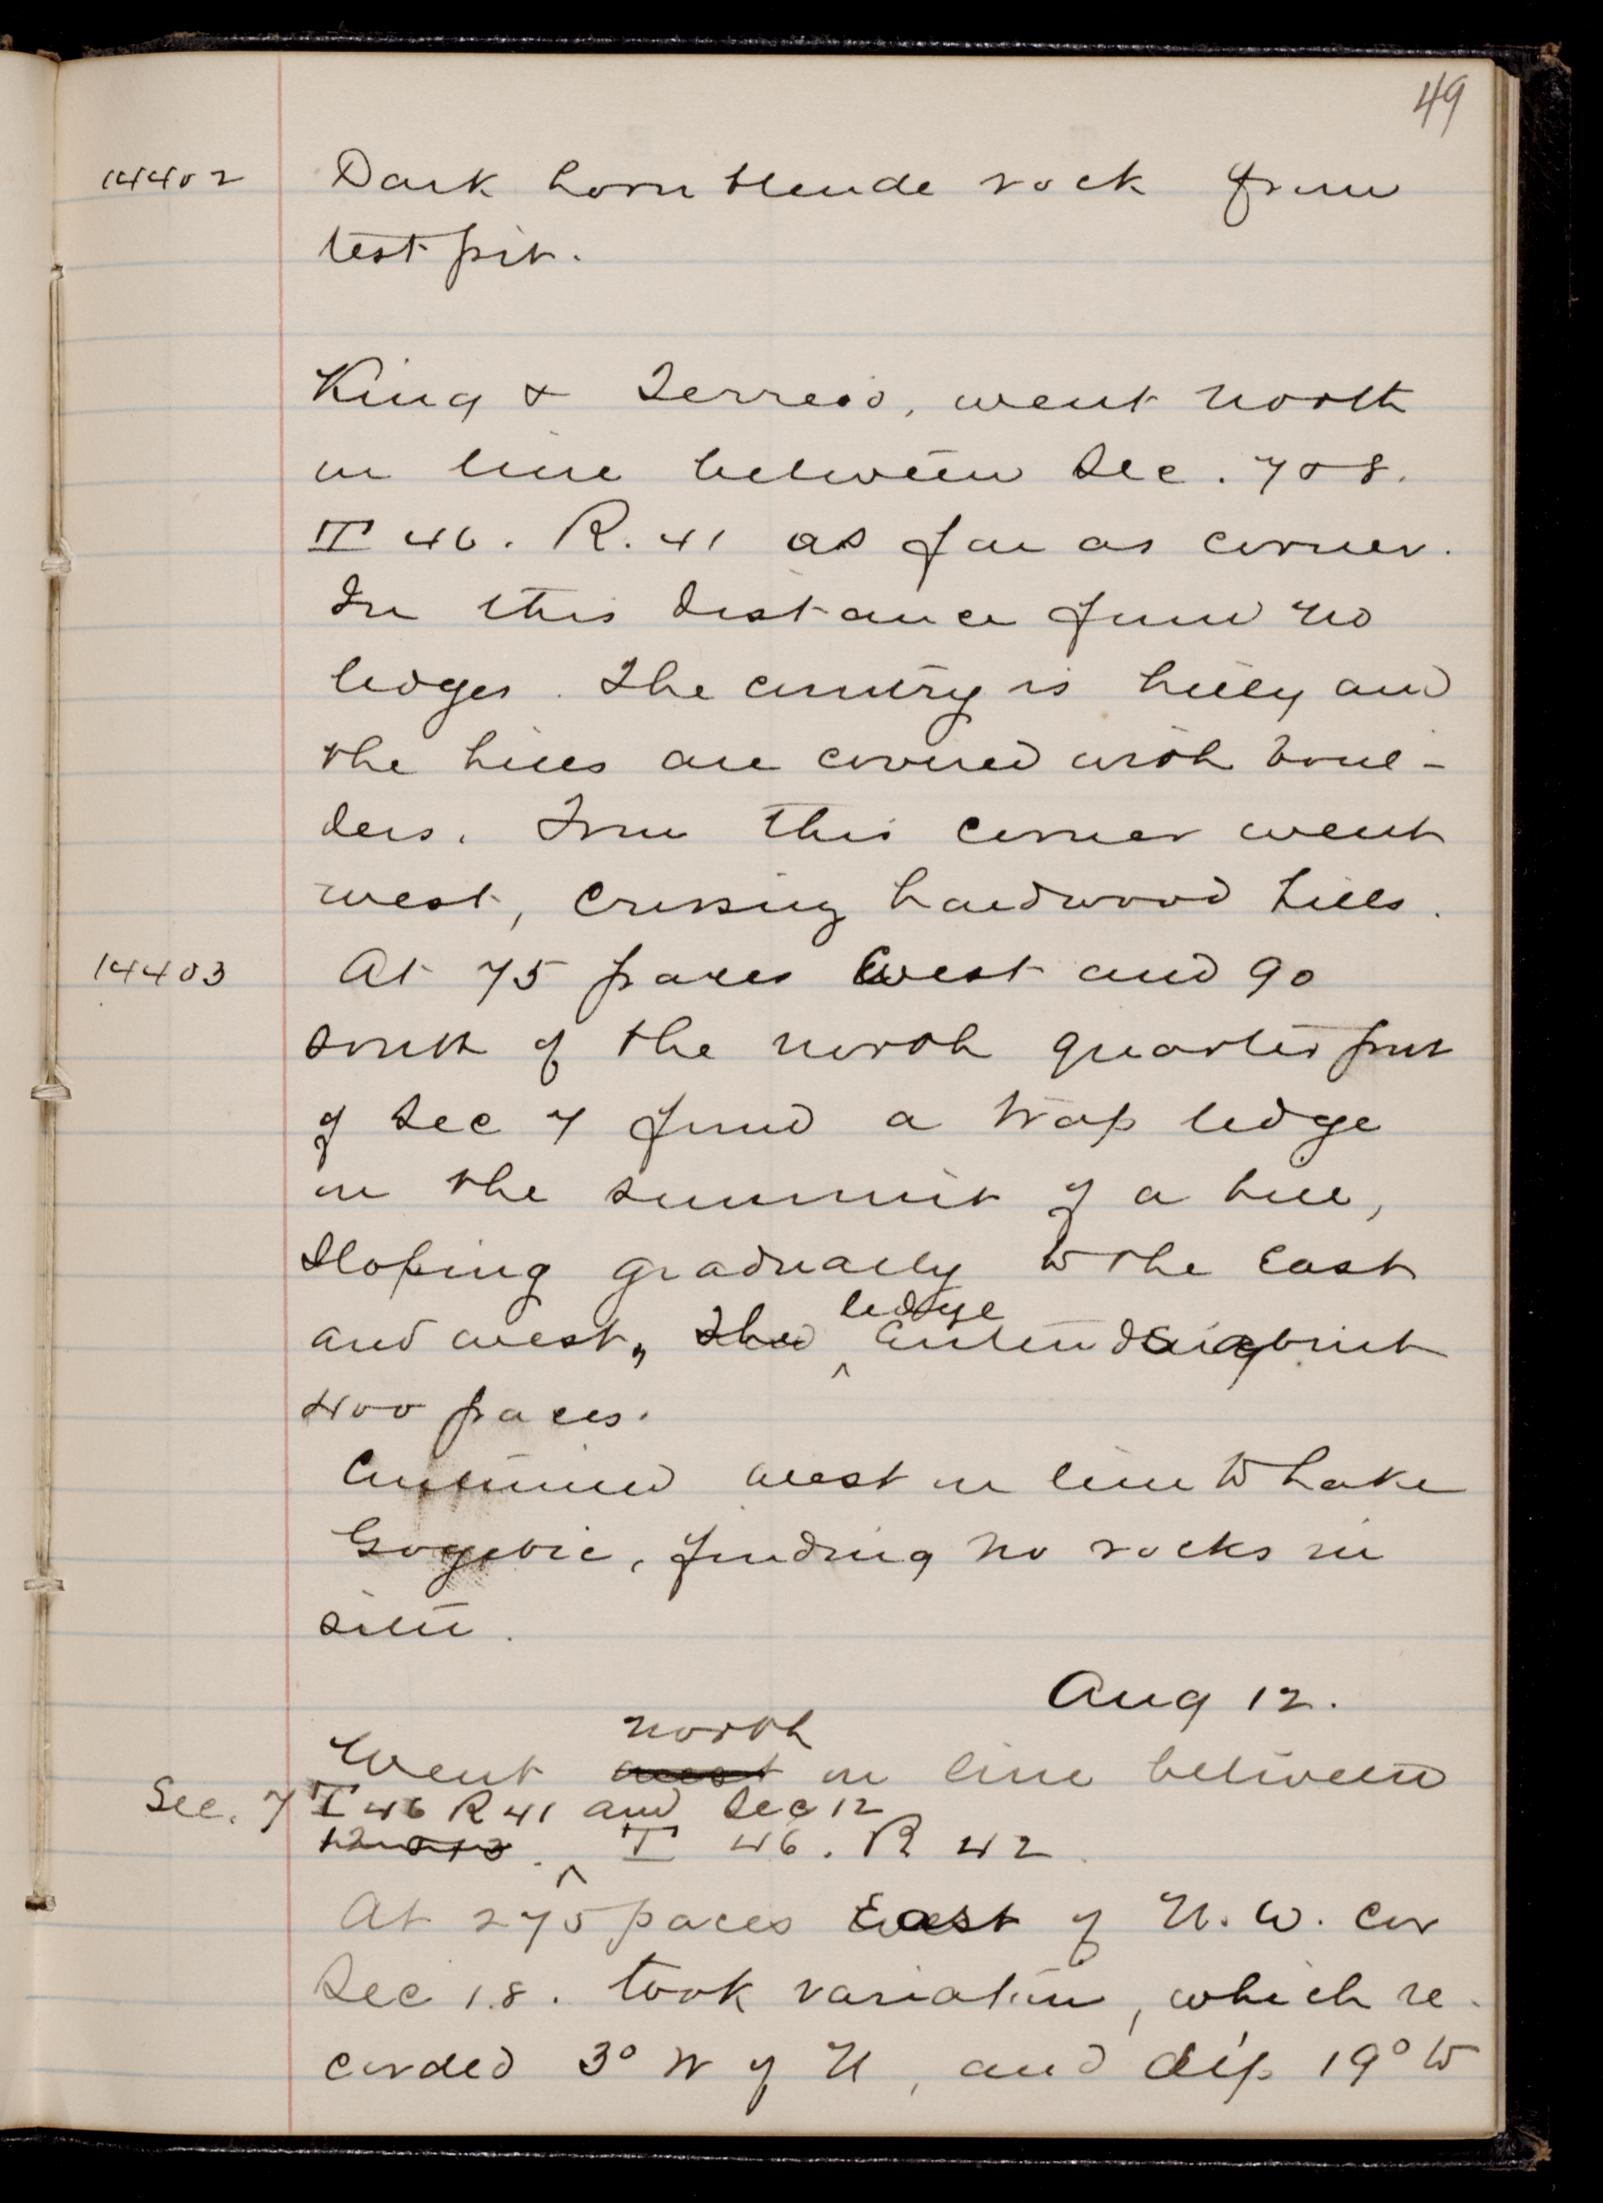 49
14402 Dark hornblende rock from
test pit.
King & Ferreis, went north
on line between Sec. 7 & 8.
T 46. R. 41 as far as corner.
In this distance found no
ledges. The country is hilly and
the hills are covered with boul-
ders. From this corner went
west, crossing hardwood hills.
14403 At 75 paces West and 90
south of the north quarter post
of Sec 7 found a trap ledge
on the summit of a hill,
sloping gradually to the east
ledge
and west, The ^ extending about
400 paces.
Continued west on line to Lake
Gogebic, finding no rocks in
situ.
Aug 12.
north
Went west on line between
Sec. 7 T 46 R 41 and Sec 12
12 & 13. ^ T 46. R 42.
At 275 paces East of N. W. Cor
Sec 18. took variation, which re-
corded 3° W of N, and dip 19° to